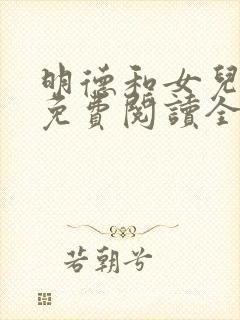 明德和女兒
免費閱讀全
若朝兮